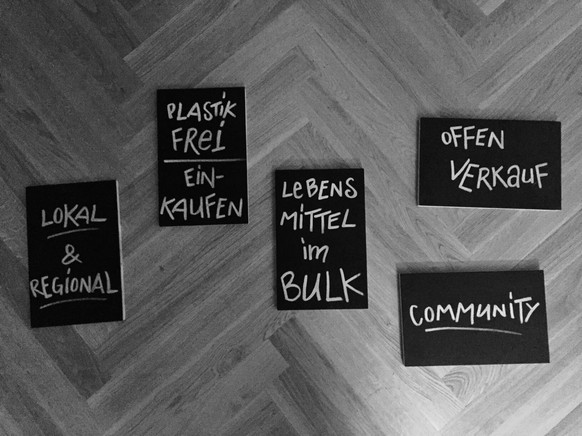 LOKAL
&
REGIONAL
PLASTIK
FREI
EIN-
KAUFEN
LEBENS
MITTEL
im
BULK
OFFEN
VERKAUF
COMMUNITY